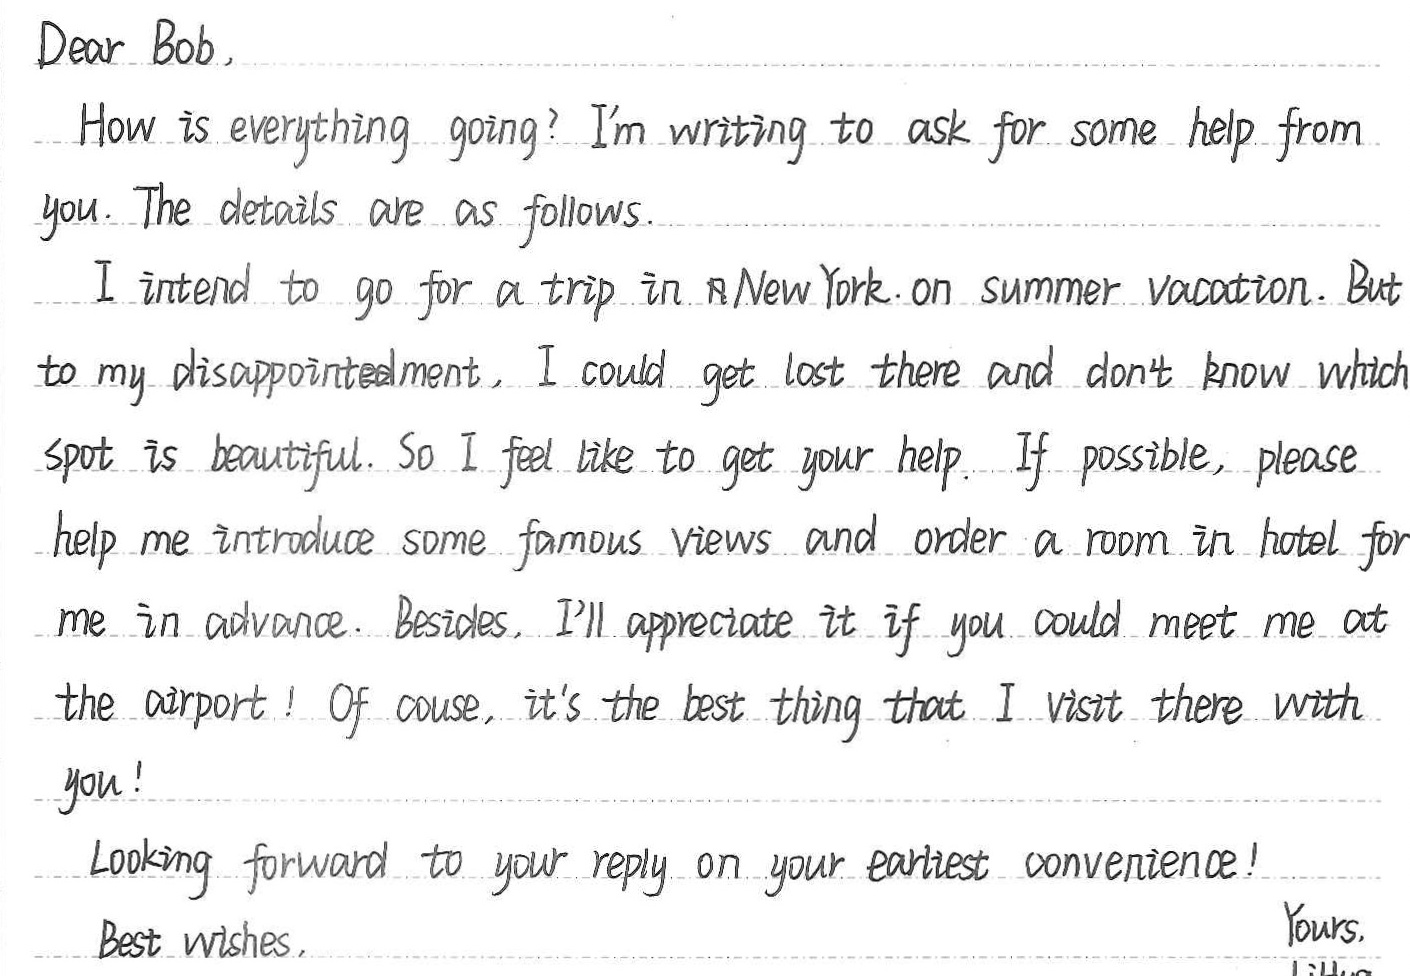 Dear Bob,
How is everything going? I'm writing to ask for some help from
you. The details are as follows.
I intend to go for a trip in New York. on summer vacation. But
to my disappointedment, I could get lost there and don't know which
spot is beautiful. So I feel like to get your help. If possible, please
help me introduce some famous views and order a room in hotel for
me in advance. Besides, I'll appreciate it if you could meet me at
the airport! Of couse, it's the best thing that I visit there with
you!
Looking forward to your reply on your earliest convenience!
Best wishes,
Yours,